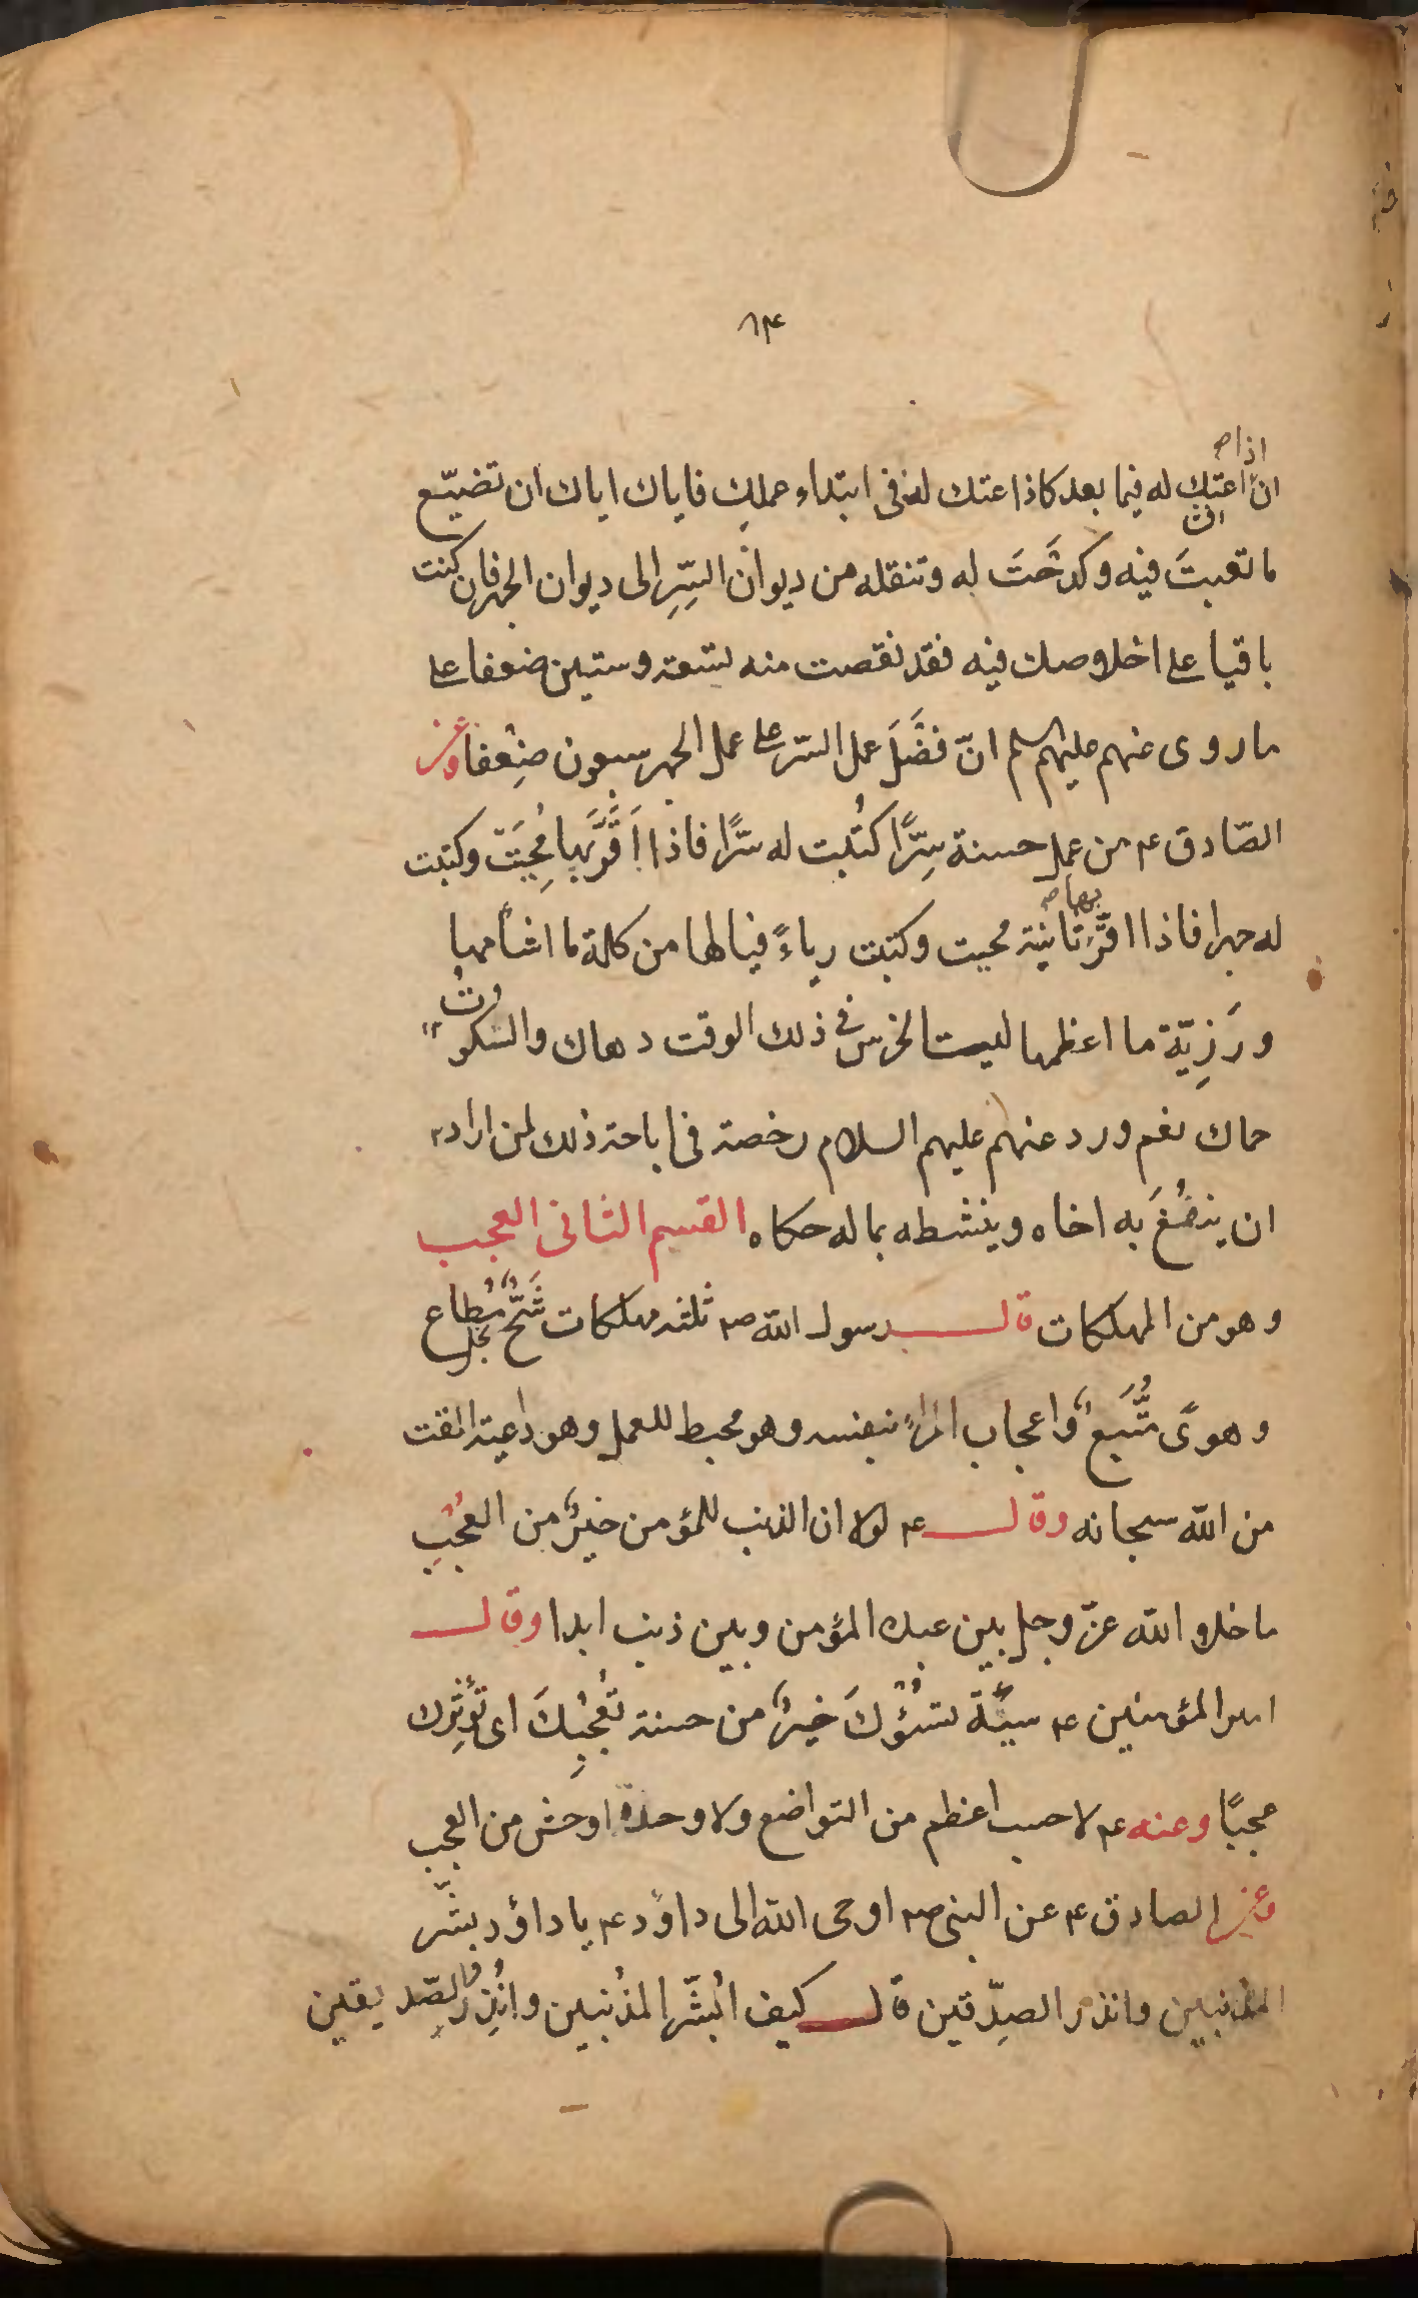 ٨٤
اذا م
انّ اعتك له فيما بعد كاذاعتك له فى ابتداء عملك فاياك اياك ان تضيّع
ما تعبتَ فيه وكدحَتَ له وتنقله من ديوان السِّرِ الى ديوان الجهر فان كنت
باقيا على اخلاصك فيه فقد نقصت منه تسعة وستين ضعفا على
ما روى عنهم عليهم السلم انّ فضَّلَ عمل السّر على عمل الجهر سبعون ضِعْفا وعن
الصّادق ع من عمل حسنة سِرًّا كتُبت له سرًّا فاذا اَقَّرَّبها مُحِيَتْ وكتبت
بها م
له جهرا فاذا اقرَّ ثانية محيت وكتبت رياءً فيا لها من كلمة ما اشأمها
ورَزِيّة ما اعظمها ليت الخرس فى ذلك الوقت دهاك والسكوتُ
حماك نعم ورد عنهم عليهم السلام رخصة فى اباحة ذلك لمن اراد
ان ينفعَ به اخاه وينشطه بما له حكاه القسم الثانى العجب
وهو من المهلكات قال رسول الله ص ثلثة مهلكات شَحٌّ مُطاع
بخل
وهوًى مُتَّبَعٌ واعجاب المرءِ بنفسه وهو محبط للعمل وهو داعية المقت
من الله سبحانه وقال ع لولا ان الذنب للمؤمن خيرٌ من العُجْبِ
ما خلا الله عزّ وجل بين عبده المؤمن وبين ذنب ابدا وقال
امير المؤمنين ع سيّئة تسُؤْكَ خيرٌ من حسنة تُعْجِبُكَ اى تؤثِرك
عجبًا وعنه ع لا حسب اعظم من التواضع ولا وحدة اوحش من العجب
وعن الصادق ع عن النبى ص اوحى الله الى داوُد ع يا داؤد بشّر
المذنبين وانذر الصدّيقين قال كيف اُبشّر المذْنبين واُنذِرُ الصّديقين